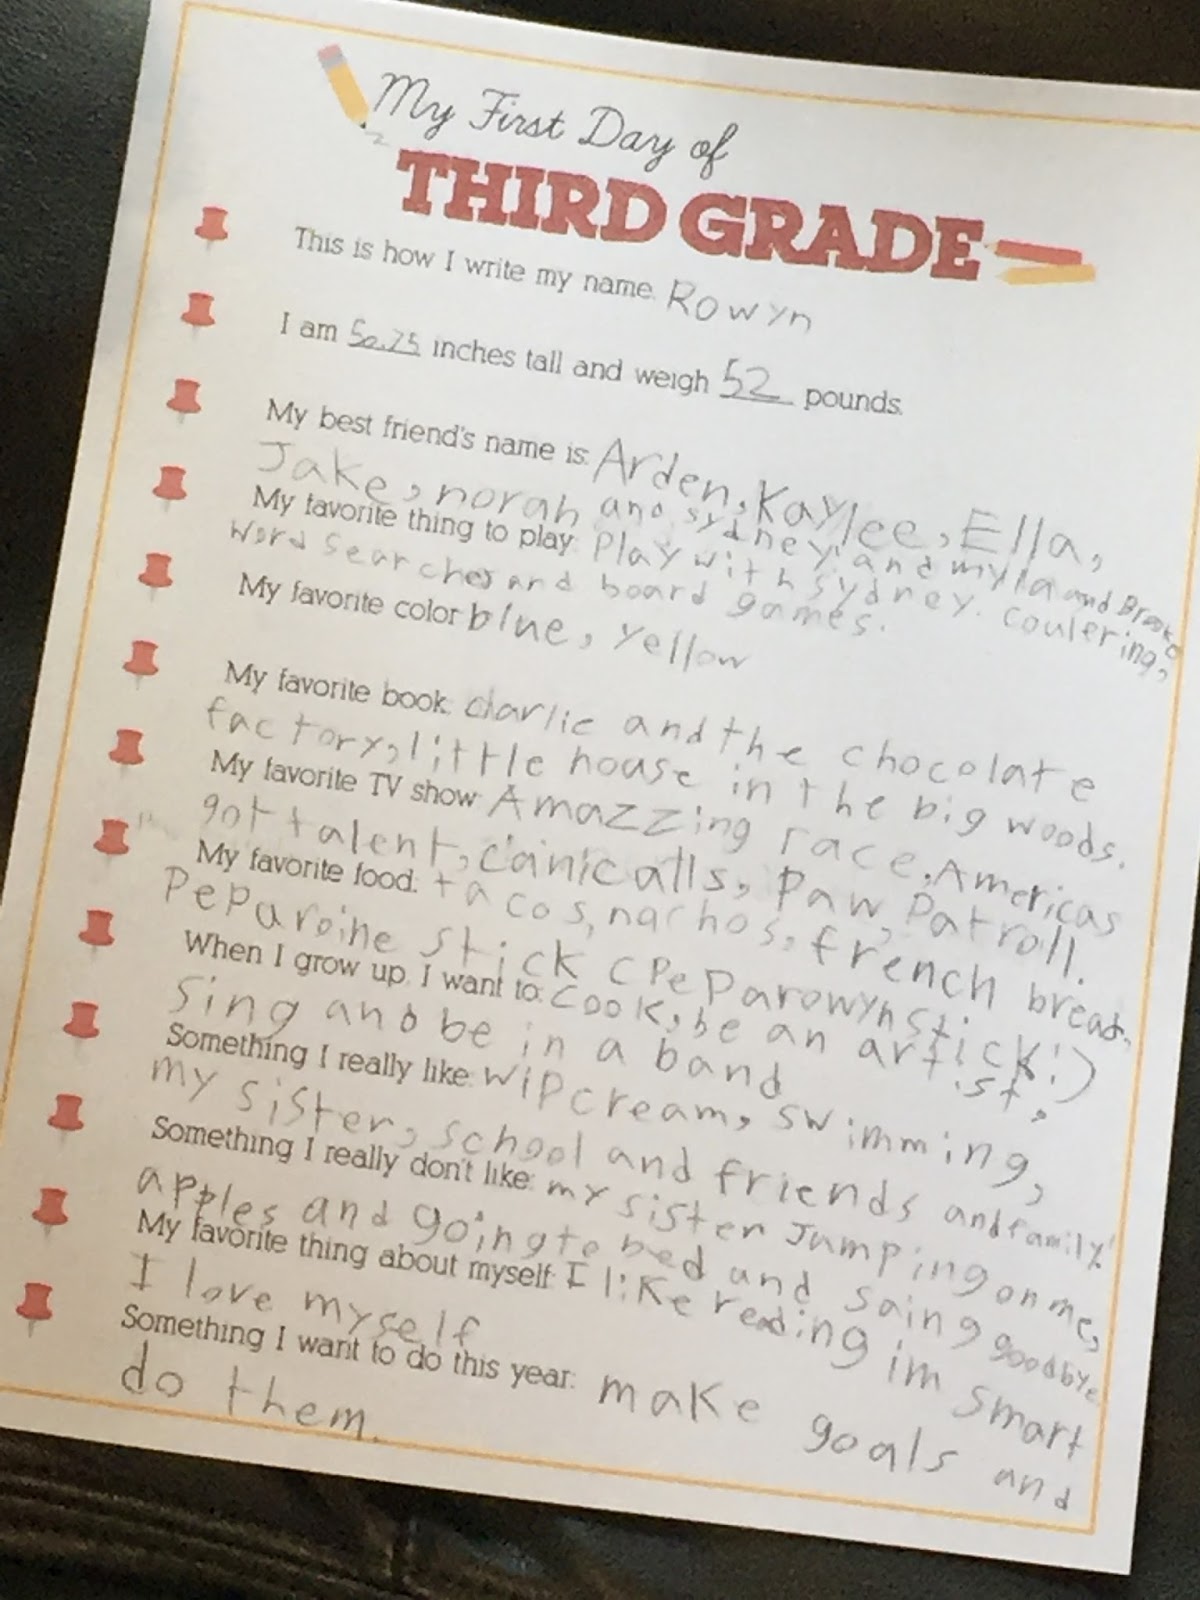 My First Day of
THIRD GRADE
This is how I write my name: Rowyn
I am 50.75 inches tall and weigh 52 pounds.
My best friend's name is: Arden, Kaylee, Ella,
Jake, norah and sydney and myla and Brooke
My favorite thing to play: Play with sydney. coulering,
word searches and board games.
My favorite color blue, yellow
My favorite book: charlie and the chocolate
factory, little house in the big woods.
My favorite TV show: Amazzing race, Americas
got talent, canicalls, Paw Patroll.
My favorite food: tacos, nachos, french bread,
Peparoine stick (Peparowyn stick :)
When I grow up, I want to: cook, be an artist,
sing and be in a band
Something I really like: wipcream, swimming,
my sister, school and friends and family!
Something I really don't like: my sister Jumping on me,
apples and going to bed and saing goodbye
My favorite thing about myself: I like reading im smart
I love myself
Something I want to do this year: make goals and
do them.